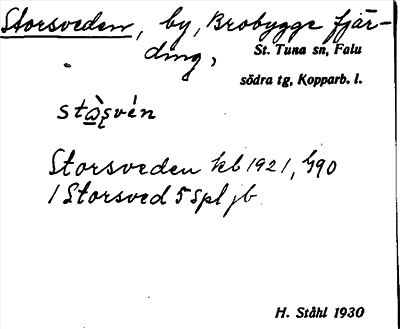 Storsveden, by, Brobygge fjär-
ding, St. Tuna sn, Falu
södra tg, Kopparb. l.
Storsveden kb 1921, G90
1 Storsved 5 Spl jb
H. Ståhl 1930